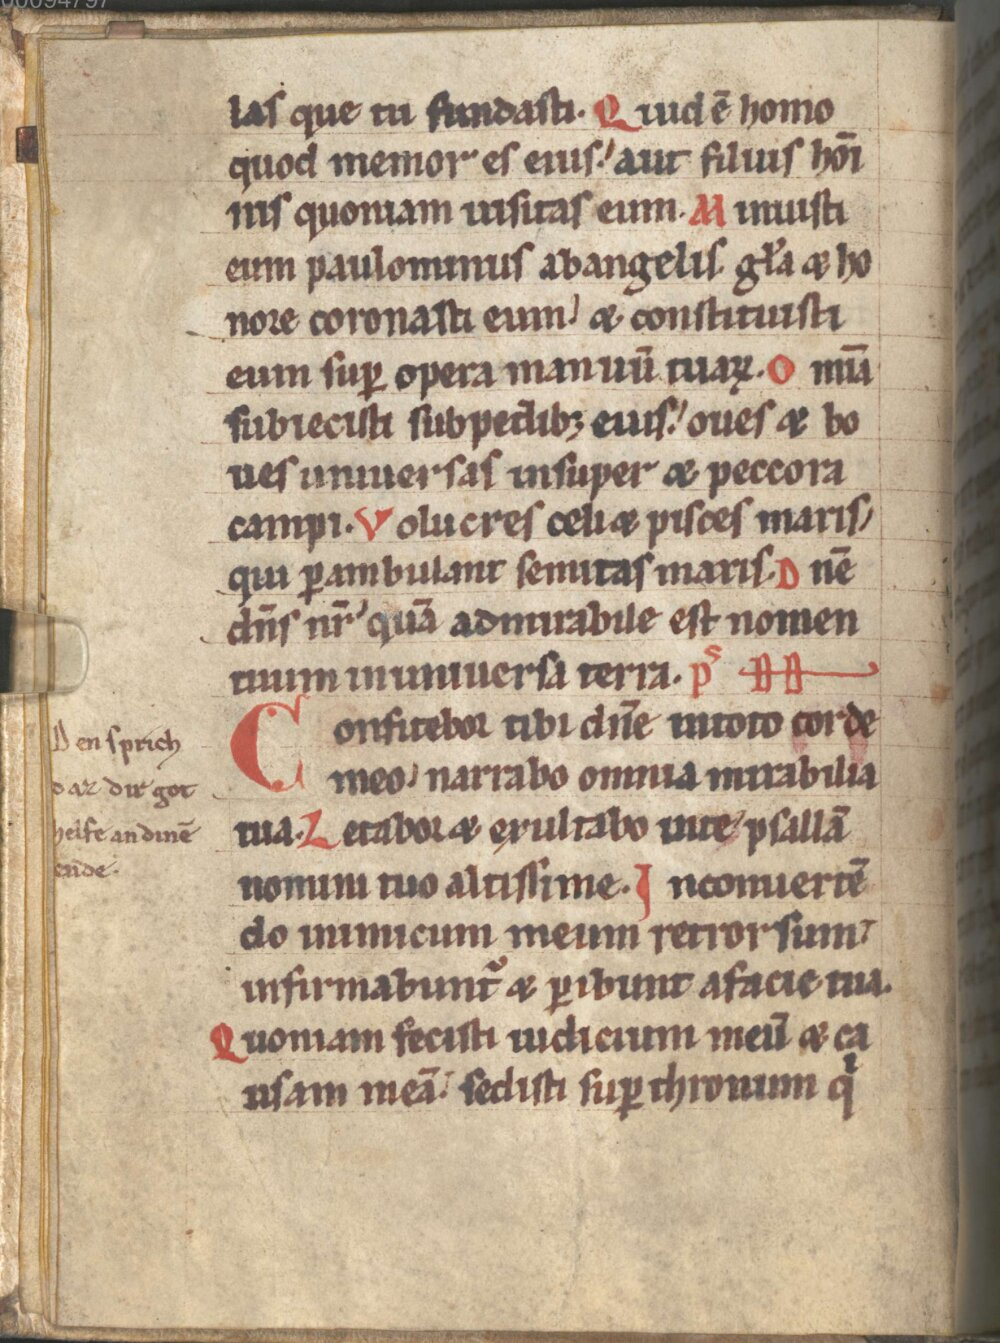 las que tu fundasti. Quid ē homo
quod memor es eius? aut filius hōi
nis quoniam uisitas eum. Minuisti
eum paulominus abangelis. gl̄a & ho
nore coronasti eum / & constituisti
eum suꝑ opera manuū tuaꝝ. Omīa
subiecisti subpedibꝫ eius? oues & bo
ues uniuersas insuper & peccora
campi. Volucres celi & pisces maris /
qui ꝑambulant semitas maris. Dnē
dn̄s nr̄ quā admirabile est nomen
tuum inuniuersa terra. ps
Confitebor tibi dn̄e intoto corde
meo / narrabo omnia mirabilia
tua. Letabor & exultabo inte / psallā
nomini tuo altissime. Inconuertē
do inimicum meum retrorsum /
infirmabunt᷑ & ꝑibunt afacie tua.
Quoniam fecisti iudicium meū & ca
usam meā / sedisti suꝑ thronum q̇
Den sprich
daz dir got
helfe andinē
ende.